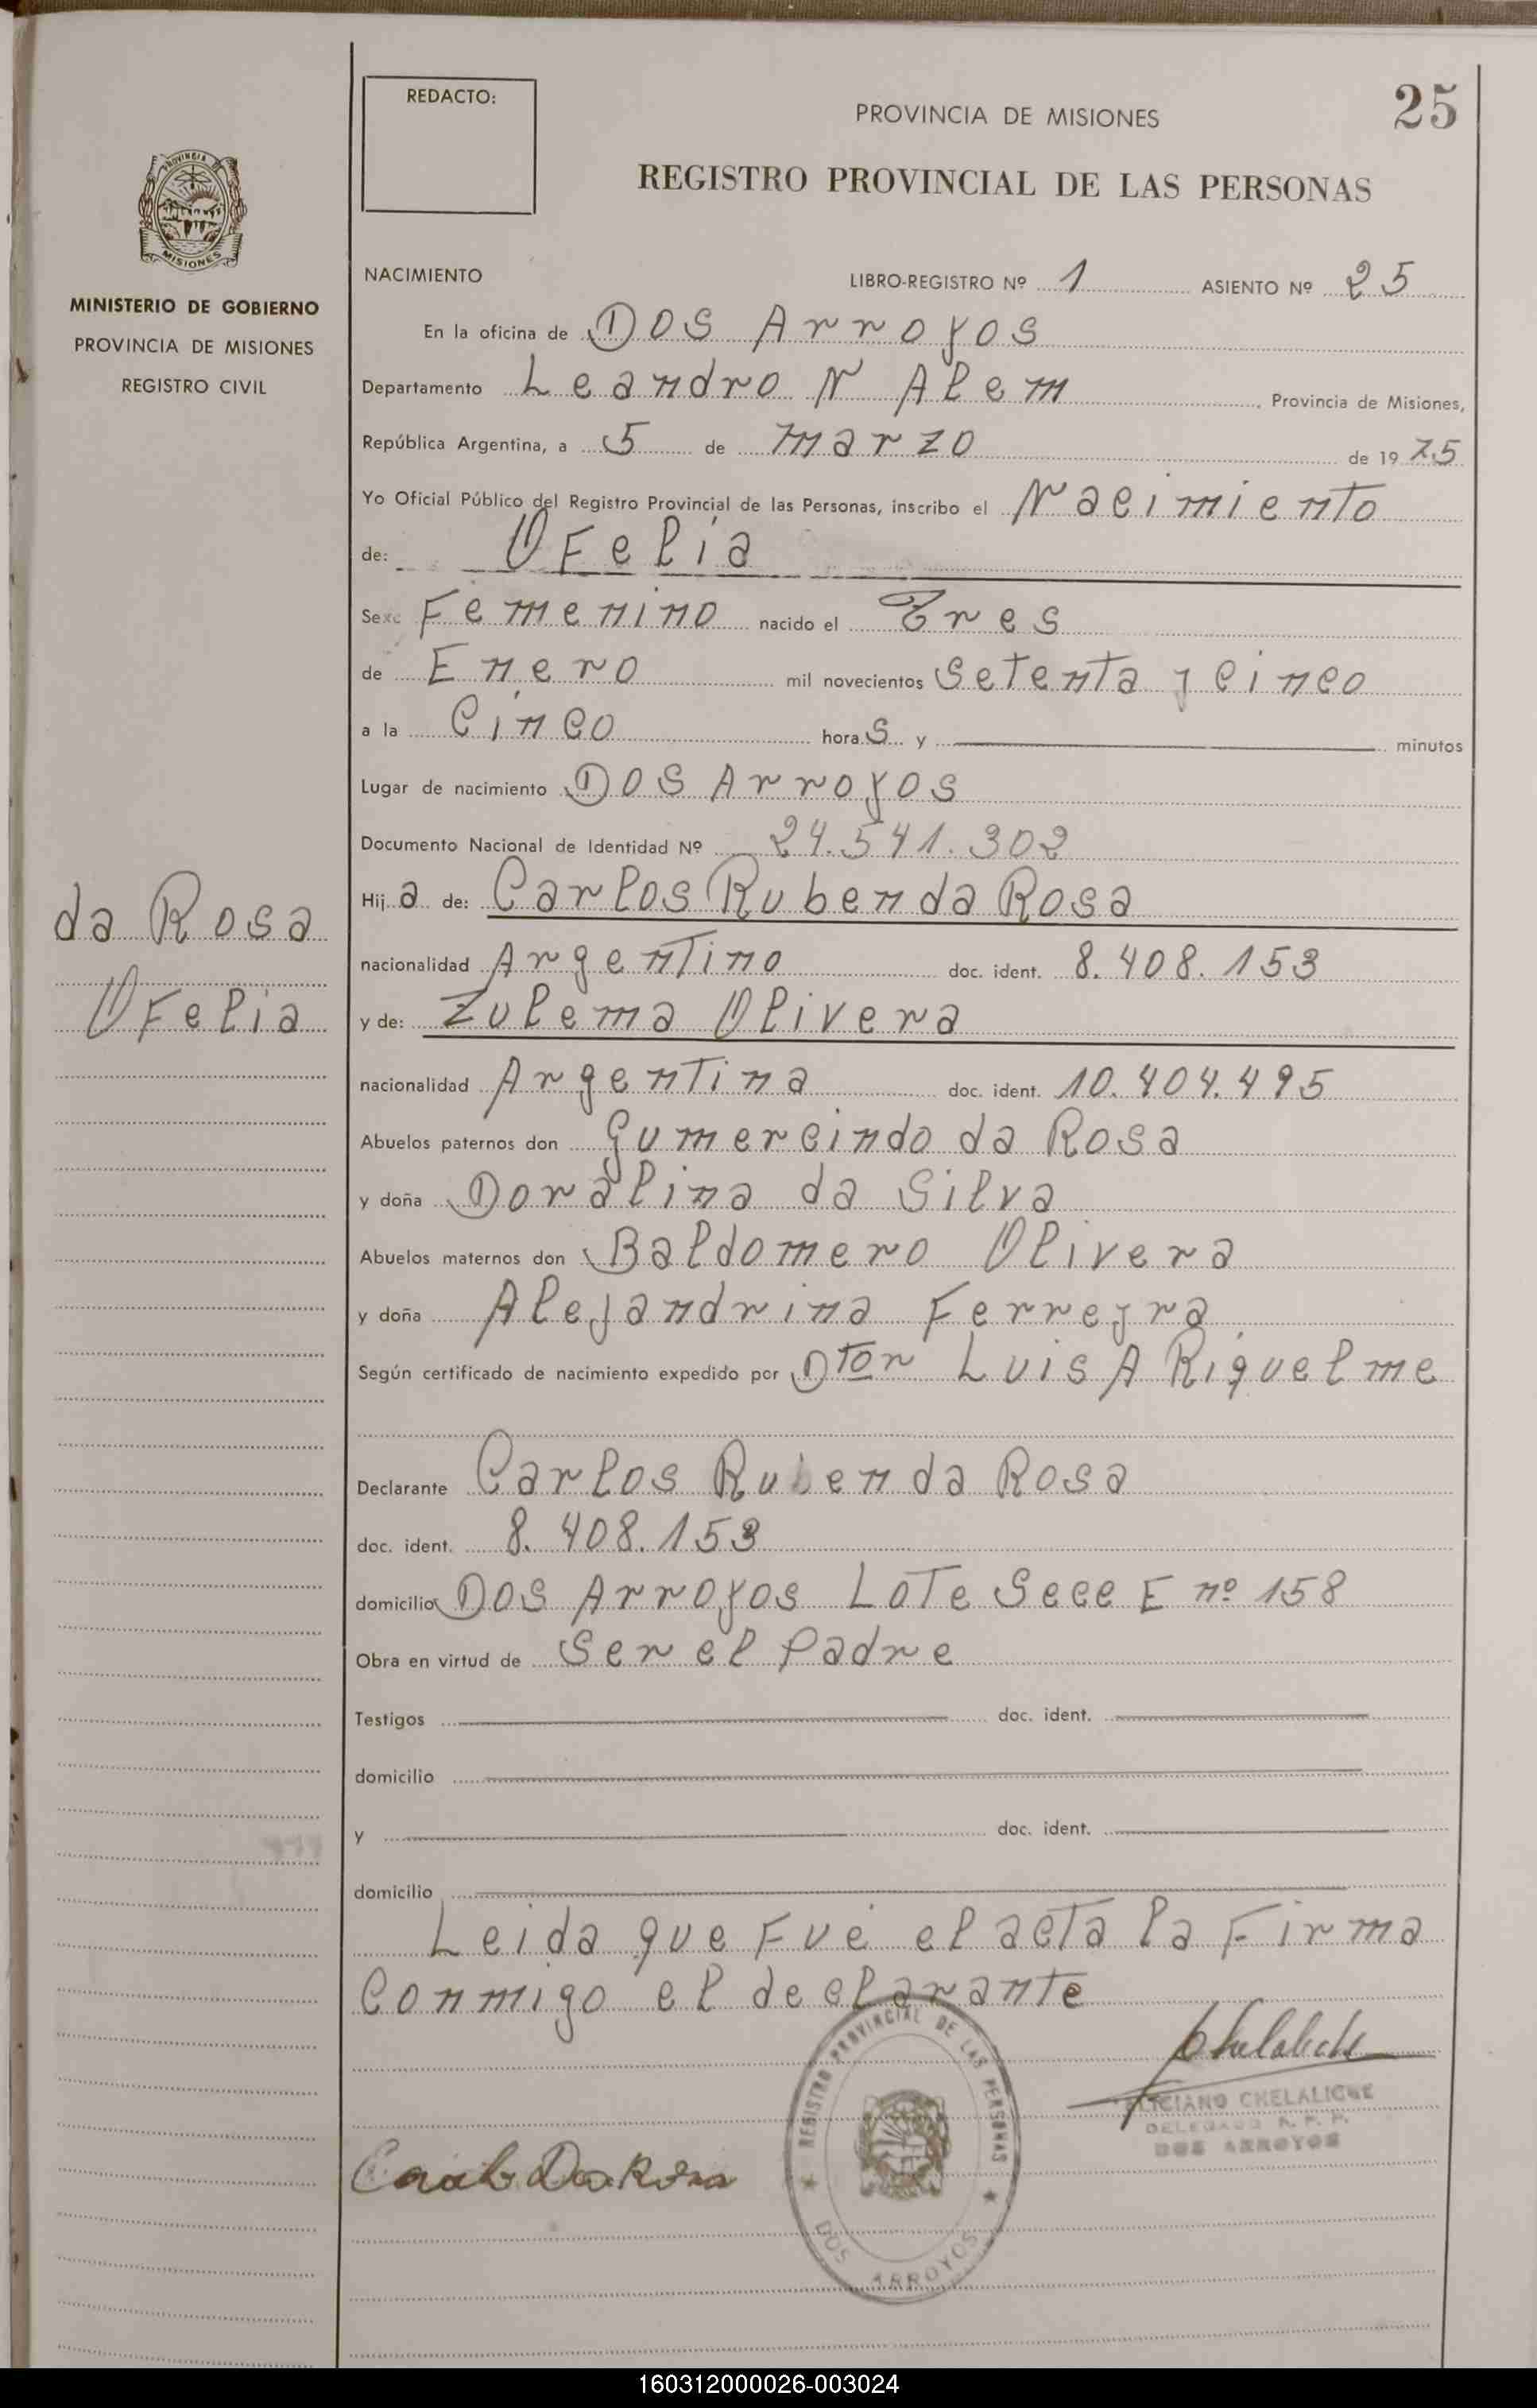 REDACTO:
PROVINCIA DE MISIONES
25
REGISTRO PROVINCIAL DE LAS PERSONAS
PROVINCIA DE
MISIONES
MINISTERIO DE GOBIERNO
PROVINCIA DE MISIONES
REGISTRO CIVIL
NACIMIENTO LIBRO-REGISTRO Nº 1 ASIENTO Nº 25
En la oficina de Dos Arroyos
Departamento Leandro N Alem, Provincia de Misiones,
República Argentina, a 5 de marzo de 1975
Yo Oficial Público del Registro Provincial de las Personas, inscribo el Nacimiento
de: Ofelia
Sexo Femenino nacido el Tres
de Enero mil novecientos Setenta y cinco
a la Cinco horas y minutos
Lugar de nacimiento Dos Arroyos
Documento Nacional de Identidad Nº 24.541.302
da Rosa
Ofelia
Hija de: Carlos Ruben da Rosa
nacionalidad Argentino doc. ident. 8.408.153
y de: Zulema Olivera
nacionalidad Argentina doc. ident. 10.404.495
Abuelos paternos don Gumercindo da Rosa
y doña Doralina da Silva
Abuelos maternos don Baldomero Olivera
y doña Alejandrina Ferreyra
Según certificado de nacimiento expedido por Dtor Luis A Riquelme
Declarante Carlos Ruben da Rosa
doc. ident. 8.408.153
domicilio Dos Arroyos Lote Secc E nº 158
Obra en virtud de Ser el Padre
Testigos doc. ident.
domicilio
y doc. ident.
domicilio
Leida que Fué el acta la Firma
Conmigo el declarante
REGISTRO PROVINCIAL DE LAS PERSONAS
DOS ARROYOS
Chelaliche
CHELALICHE
DELEGADO R. P. P.
DOS ARROYOS
Carlos Da Rosa
160312000026-003024